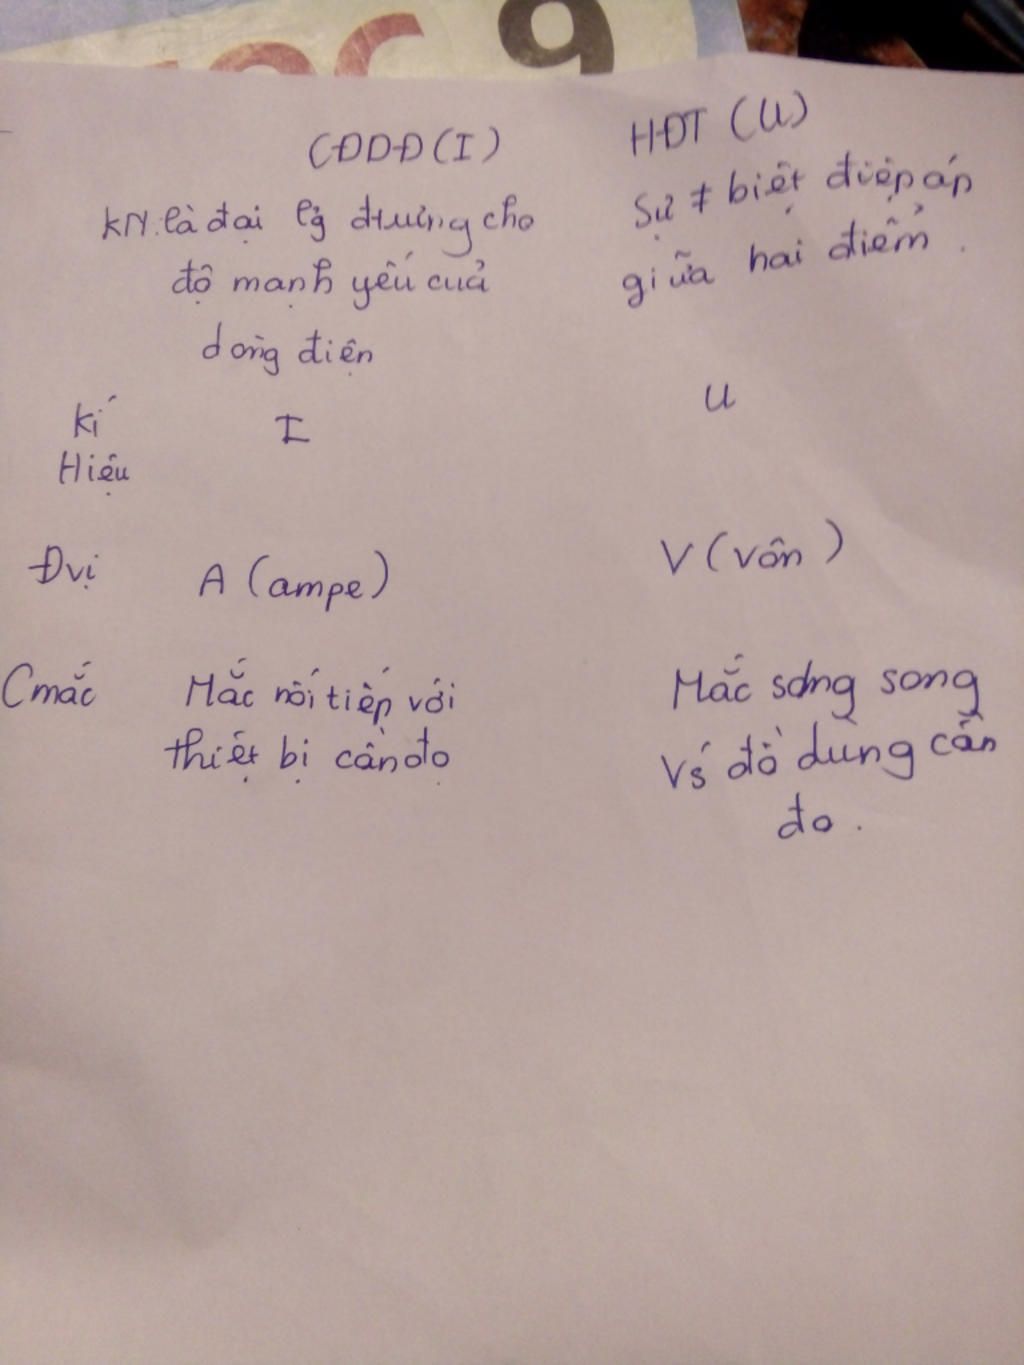 9
CĐDĐ (I)
HĐT (U)
KN: là đại lg đtrưng cho
độ mạnh yếu cuả
dòng điện
Sự ≠ biệt điệp áp
giữa hai điểm.
kí
Hiệu
I
U
Đvị
A (ampe)
V (vôn)
Cmắc
Mắc nối tiếp với
thiết bị cần đo
Mắc song song
vs đồ dùng cần
đo.